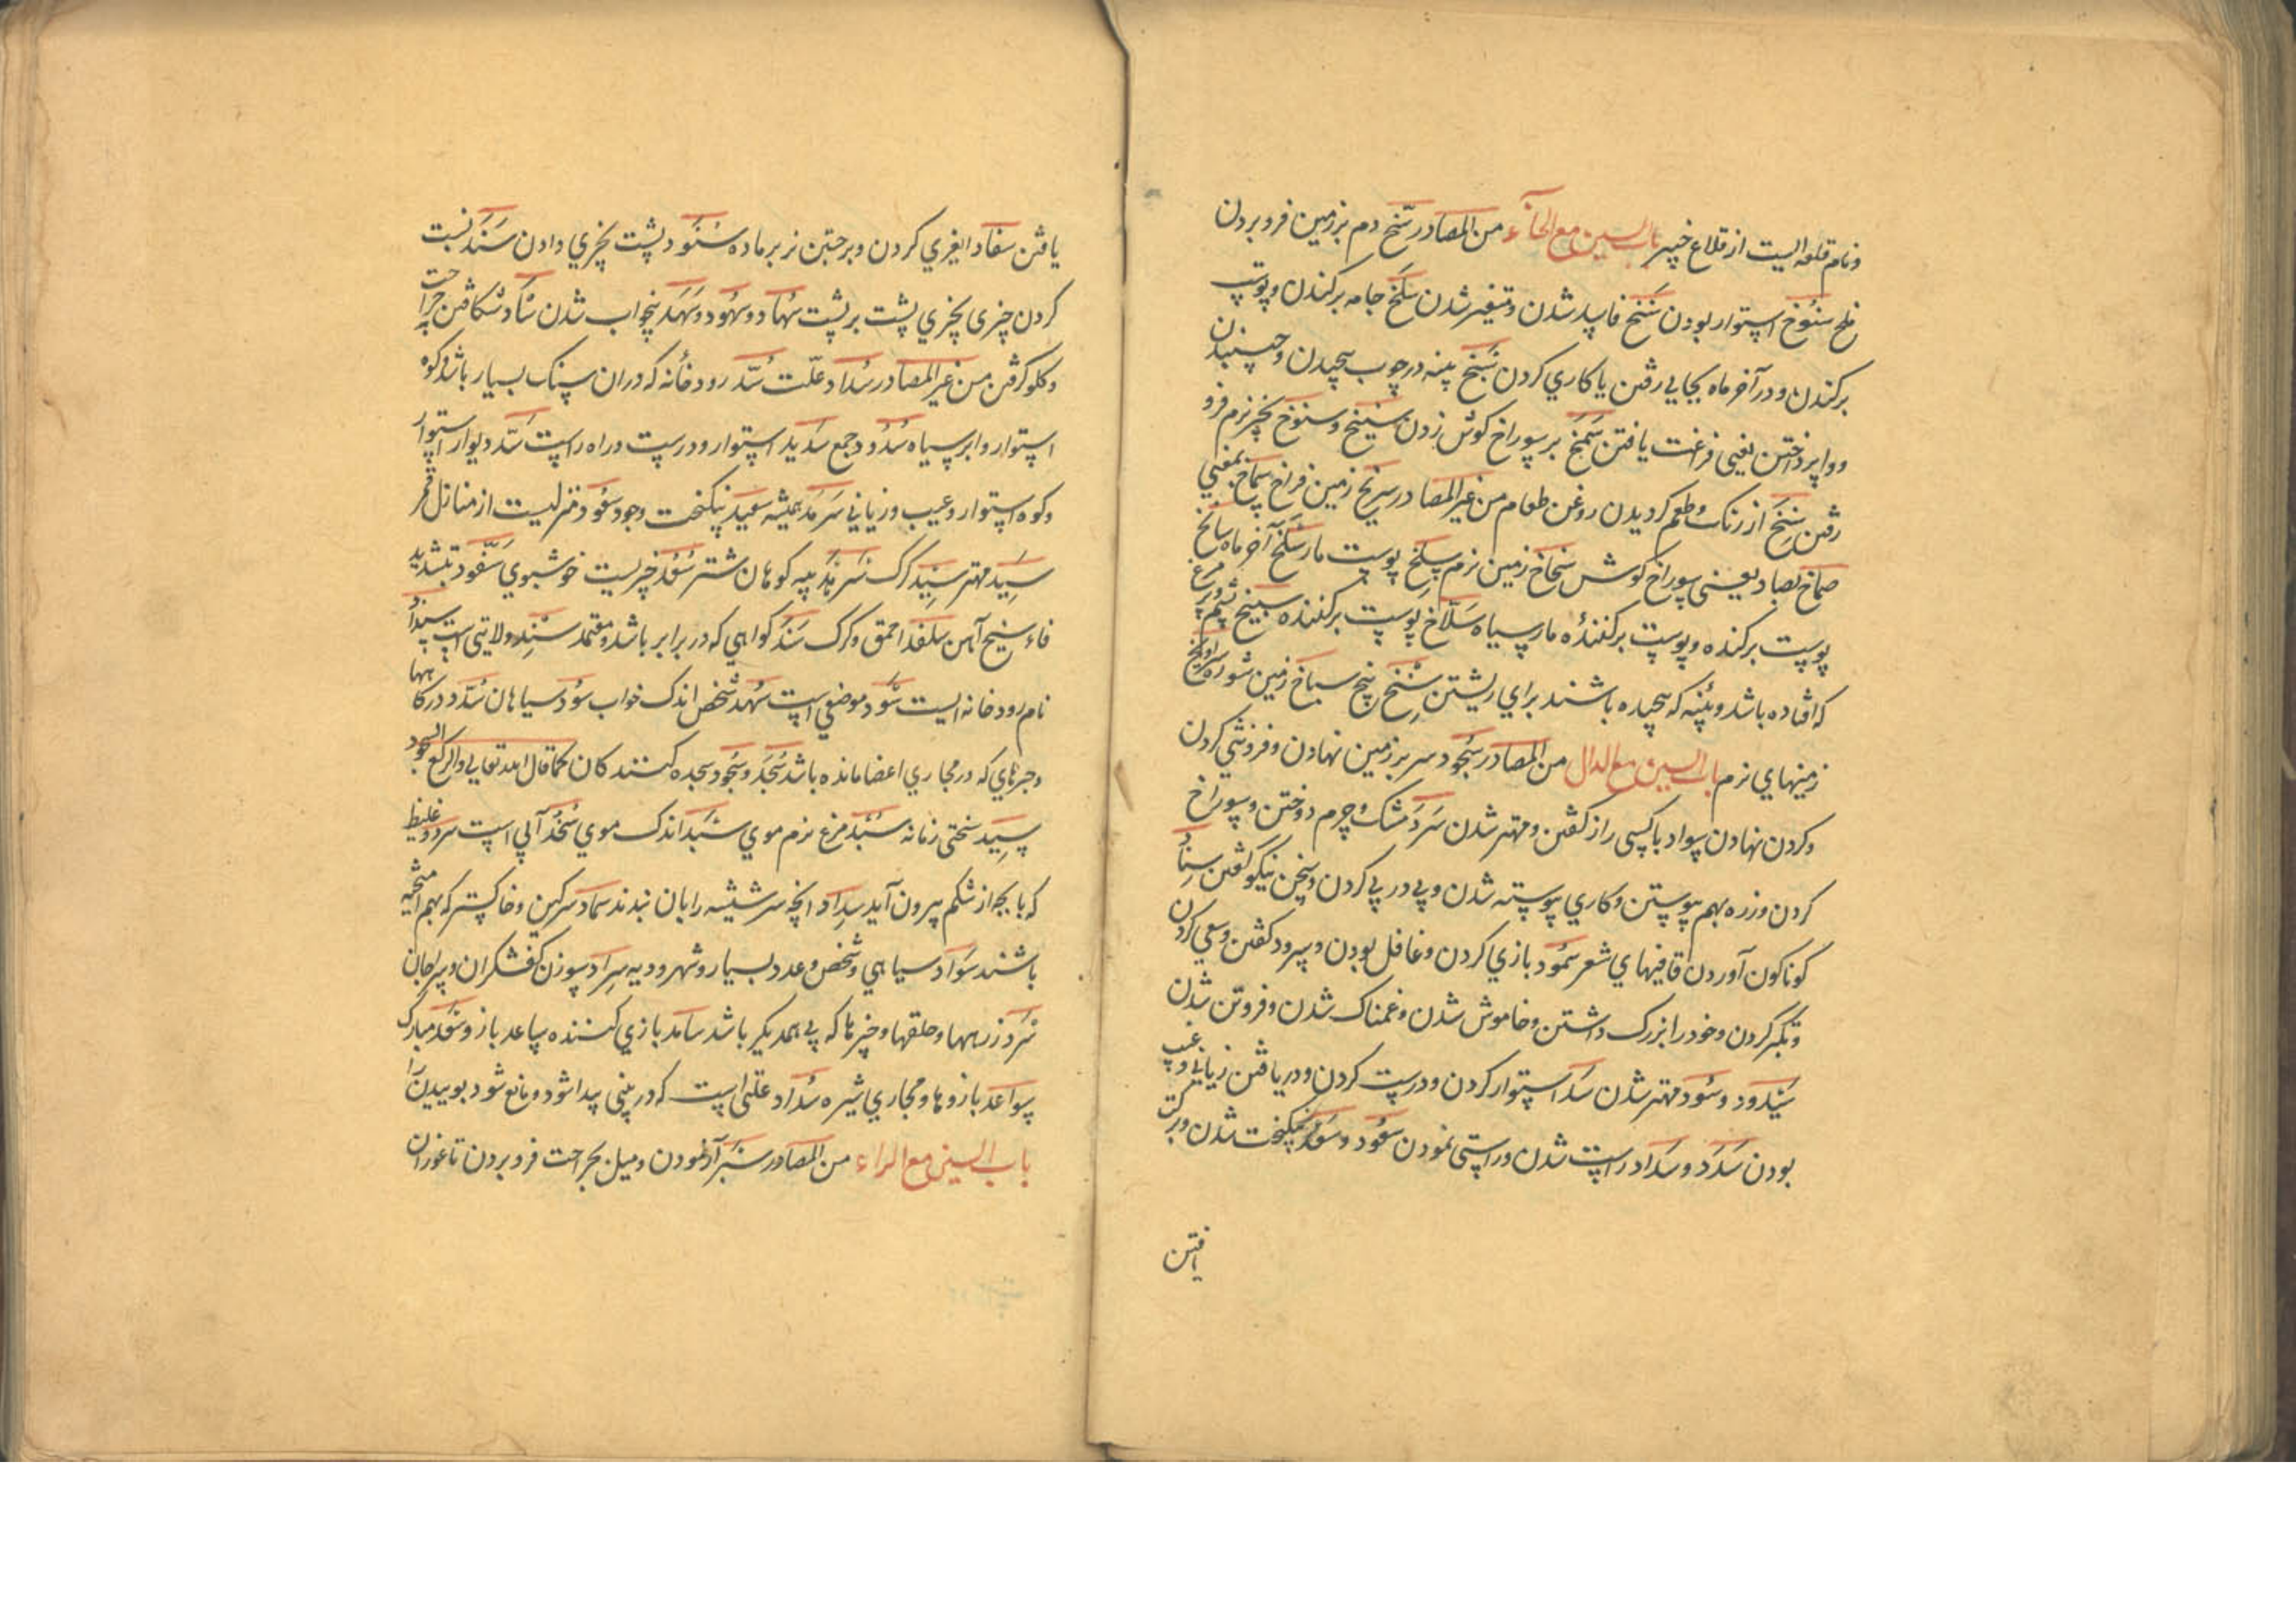 ونام قلعه ایست از قلاع خیبر باب السین مع الخاء من المصادر سنخ دم بر زمین فرو بردن
ملخ سنوخ استوار بودن سنخ فاسد شدن و متغیر شدن سلخ جامه برکندن و پوست
برکندن و در آخر ماه بجایی رفتن یا کاری کردن سبخ پنبه در چوب پیچیدن و خسبیدن
و واپرداختن یعنی فراغت یافتن سمخ بر سوراخ کوش زدن سیخ و سنوخ بچیز نرم فرو
رفتن سنخ از رنک و طعم کردیدن روغن طعام من غیر المصادر سریخ زمین فراخ سماخ بمعنی
صماخ بصاد یعنی سوراخ کوش سخاخ زمین نرم سلخ پوست مار سلخ آخر ماه سالخ
پوست برکنده و پوست برکننده مار سیاه سلاخ پوست برکننده سبیخ پشم و پر مرغ
که افتاده باشد و پنبه که پیچیده باشند برای ریشتن سنخ بیخ سباخ زمین شوره
زمینهای نرم باب السین مع الدال من المصادر سجود سر بر زمین نهادن و فروتنی کردن
و کردن نهادن سواد با کسی راز کفتن و مهتر شدن سرد مشک و چرم دوختن و سوراخ
کردن و زره بهم پیوستن و کاری پیوسته شدن و پی در پی کردن و سخن نیکو کفتن سناد
کوناکون آوردن قافیهای شعر سمود بازی کردن و غافل بودن و سرود کفتن و سعی کردن
و تکبر کردن و خود را بزرک داشتن و خاموش شدن و غمناک شدن و فروتن شدن
سیدود و سود مهتر شدن سد استوار کردن و درست کردن و دریافتن زیانی و عیب
بودن سدد و سداد راست شدن و راستی نمودن سعود و سعد نیکبخت شدن و برکت
یافتن
یافتن سفاد ایغری کردن و برجستن نر بر ماده سنود پشت بچیزی دادن سند نسبت
کردن چیزی بچیزی پشت بر پشت سهاد و سهود و سهد بیخواب شدن سأد شکافتن جراحت
و کلو کرفتن من غیر المصادر سداد علت سد رودخانه که در آن سنک بسیار باشد و کوه
استوار و ابر سیاه سدود جمع سدید استوار و درست و راه راست سد دیوار استوار
و کوه استوار و عیب و زیانی سرمد همیشه سعید نیکبخت وجود سعود منزلیست از منازل قمر
سید مهتر سید کرک سرهد پیه کوهان شتر سعد چیزیست خوشبوی سفود بتشدید
فاء سیخ آهن سلغد احمق و کرک سند کواهی که در برابر باشد و معتمد سند ولایتی است
نام رودخانه ایست سود موضعی است سهد شخص اندک خواب سود سیاهان سدد درکاهها
و چیزهای که در مجاری اعضا مانده باشد سجد و سجود سجده کنندکان کما قال الله تعالی والرکع السجود
سبد سختی زمانه سبد مرغ نرم موی سبد اندک موی سخد آبی است سرد و غلیظ
که با بچه از شکم بیرون آید سداد آنچه سر شیشه را بان بندند سماد سرکین و خاکستر که بهم آمیخته
باشند سواد سیاهی و شخص و عدد بسیار و شهر و دیه سراد سوزن کفشکران
سرد زرهها و حلقها و چیزها که پی همدیکر باشد سامد بازی کننده ساعد بازو سعد مبارک
سواعد بازوها و مجاری شیره سداد علتی است که در بینی پیدا شود و مانع شود بوییدن را
باب السین مع الراء من المصادر سبر آزمودن و میل بجراحت فرو بردن تا غور آن